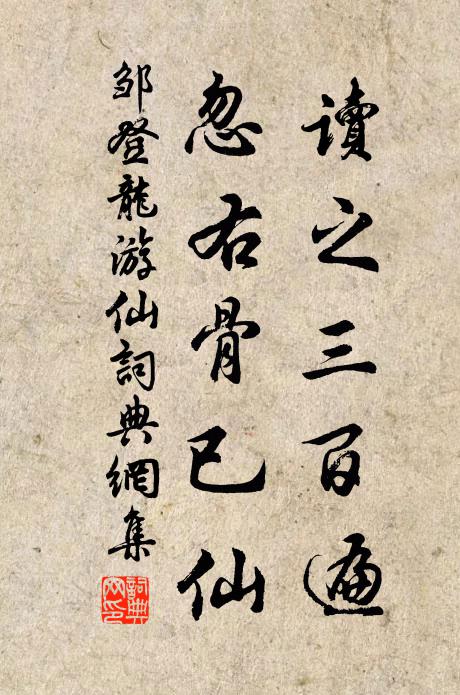 讀之三百遍
忽右骨已仙
邹登龍游仙詞典網集
詞典網印